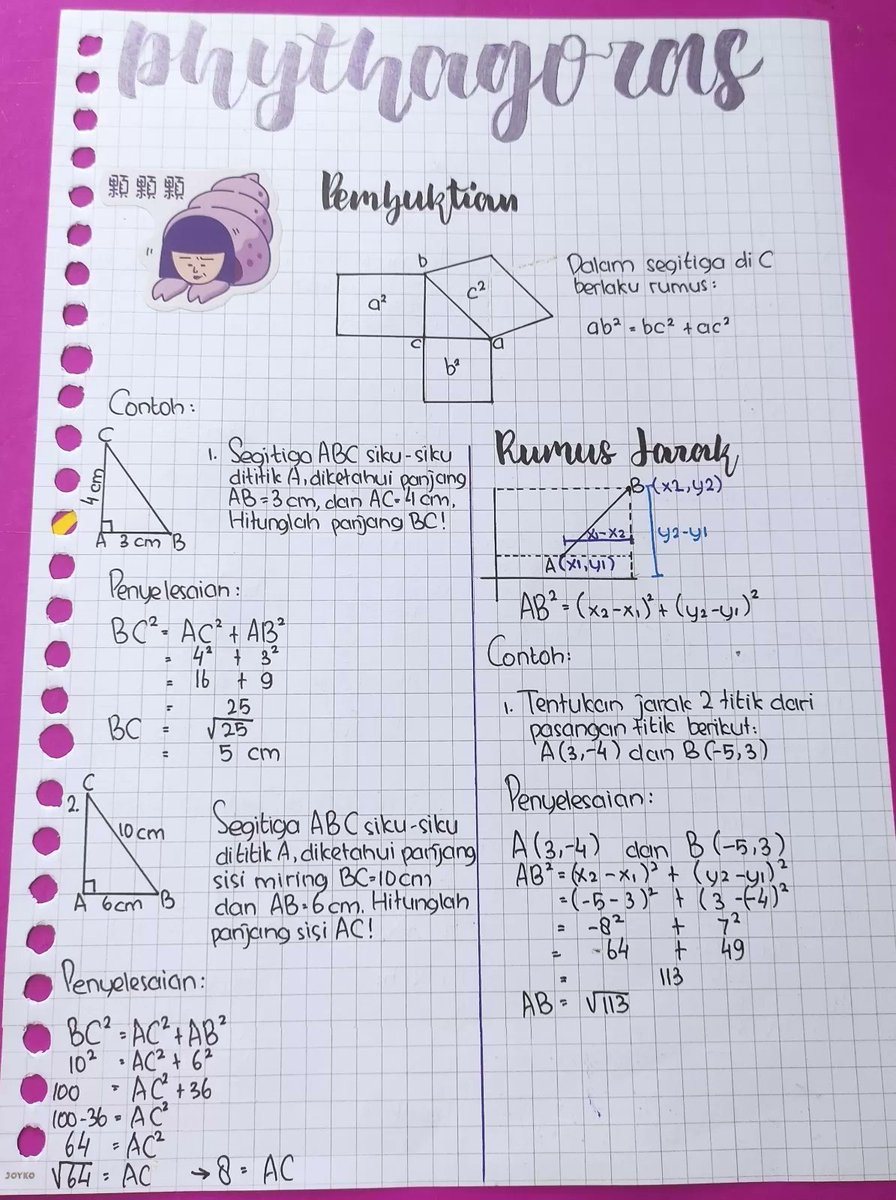 phythagoras
顆顆顆
Pembuktian
b
a²
c²
c
a
b²
Dalam segitiga di C
berlaku rumus:
ab² = bc² + ac²
Contoh:
C
4 cm
A 3 cm B
1. Segitiga ABC siku-siku
dititik A, diketahui panjang
AB = 3 cm, dan AC = 4 cm.
Hitunglah panjang BC!
Penyelesaian:
BC² = AC² + AB²
= 4² + 3²
= 16 + 9
= 25
BC = √25
= 5 cm
2.
C
10 cm
A 6cm B
Segitiga ABC siku-siku
dititik A, diketahui panjang
sisi miring BC=10 cm
dan AB=6 cm. Hitunglah
panjang sisi AC!
Penyelesaian:
BC² = AC² + AB²
10² = AC² + 6²
100 = AC² + 36
100-36 = AC²
64 = AC²
√64 = AC → 8 = AC
Rumus Jarak
B (x2, y2)
x1-x2
y2-y1
A (x1, y1)
AB² = (x2-x1)² + (y2-y1)²
Contoh:
1. Tentukan jarak 2 titik dari
pasangan titik berikut:
A (3,-4) dan B (-5,3)
Penyelesaian:
A (3,-4) dan B (-5,3)
AB² = (x2-x1)² + (y2-y1)²
= (-5-3)² + (3-(-4)²
= -8² + 7²
= -64 + 49
= 113
AB = √113
JOYKO